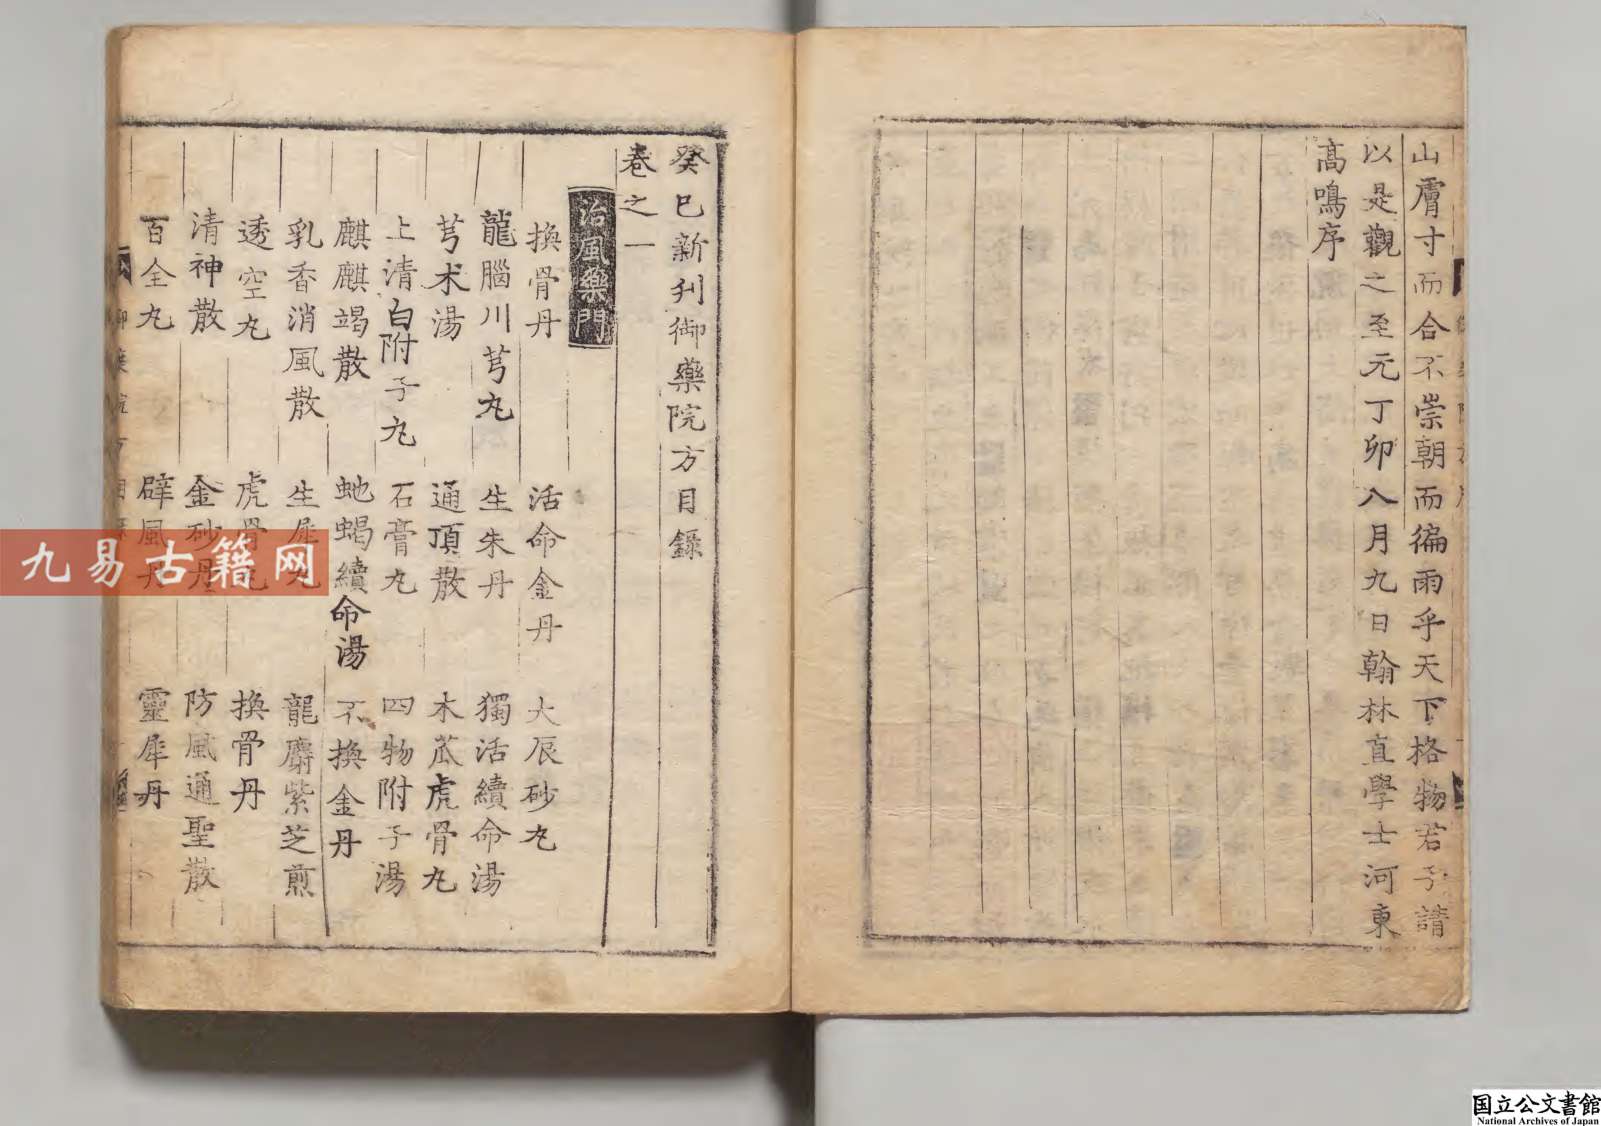 山膚寸而合不崇朝而徧雨乎天下格物若子請
以是觀之至元丁卯八月九日翰林直學士河東
高鳴序
癸巳新刋御藥院方目錄
卷之一
治風藥門
換骨丹 活命金丹 大辰砂丸
龍腦川芎丸 生朱丹 獨活續命湯
芎朮湯 通頂散 木苽虎骨丸
上清白附子丸 石膏丸 四物附子湯
麒麒竭散 虵蝎續命湯 不換金丹
乳香消風散 生犀丸 龍麝紫芝煎
透空丸 虎骨丸 換骨丹
清神散 金砂丹 防風通聖散
百全丸 辟風丹 靈犀丹
九易古籍网
国立公文書館
National Archives of Japan